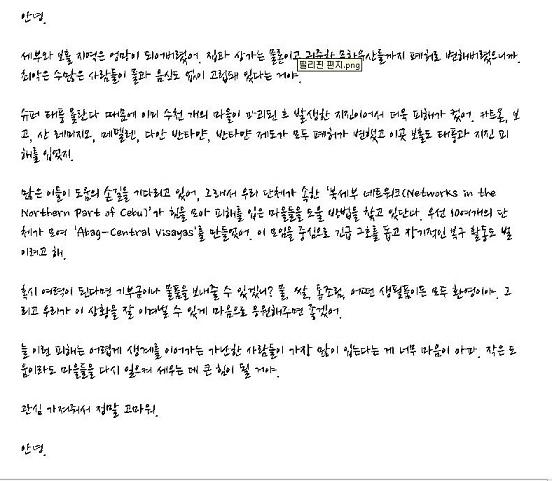 안녕.
세부와 보홀 지역은 엉망이 되어버렸어. 집과 상가는 물론이고 귀중한 문화유산들까지 폐허로 변해버렸으니까.
필리핀 편지.png
최악은 수많은 사람들이 물과 음식도 없이 고립돼 있다는 거야.
슈퍼 태풍 욜란다 때문에 이미 수천 개의 마을이 파괴된 후 발생한 지진이어서 더욱 피해가 컸어. 카트몬, 보
고, 산 레미지오, 메델렌, 다안 반타얀, 반타얀 제도가 모두 폐허가 변했고 이곳 보홀도 태풍과 지진 피
해를 입었지.
많은 이들이 도움의 손길을 기다리고 있어, 그래서 우리 단체가 속한 '북세부 네트워크(Networks in the
Northern Part of Cebu)'가 힘을 모아 피해를 입은 마을들을 도울 방법을 찾고 있단다. 우선 10여개의 단
체가 모여 'Abag-Central Visayas'를 만들었어. 이 모임을 중심으로 긴급 구호를 돕고 장기적인 복구 활동도 벌
이려고 해.
혹시 여력이 된다면 기부금이나 물품을 보내줄 수 있겠니? 물, 쌀, 통조림, 어떤 생필품이든 모두 환영이야. 그
리고 우리가 이 상황을 잘 이겨낼 수 있게 마음으로 응원해주면 좋겠어.
늘 이런 피해는 어렵게 생계를 이어가는 가난한 사람들이 가장 많이 입는다는 게 너무 마음이 아파. 작은 도
움이라도 마을들을 다시 일으켜 세우는 데 큰 힘이 될 거야.
관심 가져줘서 정말 고마워.
안녕.